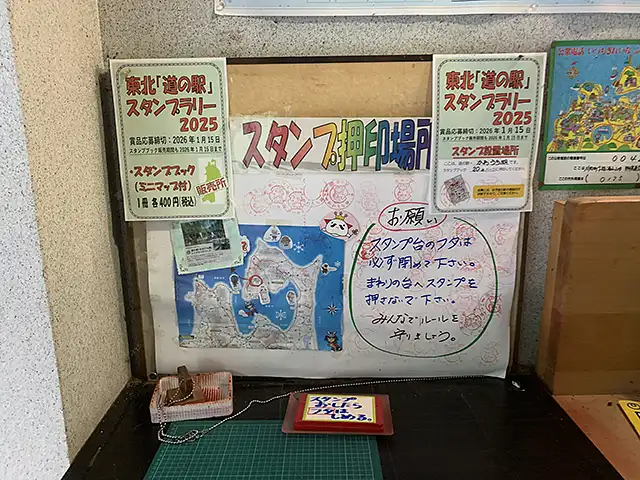 東北「道の駅」
スタンプラリー
2025
賞品応募締切：2026年1月15日
スタンプブック販売期間も2026年1月15日まで
・スタンプブック
（ミニマップ付）
1冊 各400円(税込)
販売所
スタンプ押印場所
東北「道の駅」
スタンプラリー
2025
賞品応募締切：2026年1月15日
スタンプブック販売期間も2026年1月15日まで
スタンプ設置場所
お願い
スタンプ台のフタは
必ず閉めて下さい。
まわりの台へスタンプを
押さないで下さい。
みんなでルールを
守りましょう。
スタンプ
おしたら
フタは
しめる。
004
0175